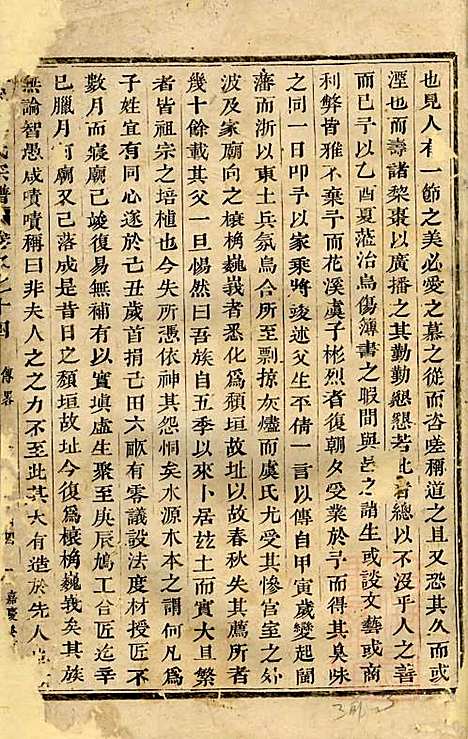 也見人有一節之美必愛之慕之從而咨嗟稱道之且又恐其久而或
湮也而壽諸梨棗以廣播之其勤勤懇懇若此者總以不沒乎人之善
而已予以乙酉夏蒞治烏傷簿書之暇間與邑之諸生或談文藝或商
利弊皆雅不棄予而花溪虞子彬烈者復朝夕受業於予而得其臭味
之同一日叩予以家乘將竣述父生平倩一言以傳自甲寅歲變起閩
藩而浙以東土兵氛烏合所至剽掠灰燼而虞氏尤受其慘官室之外
波及家廟向之榱桷巍義者悉化為頹垣故址以故春秋失其薦所者
幾十餘載其父一旦惕然曰吾族自五季以來卜居茲土而實大且繁
者皆祖宗之培植也今失所憑依神其怨恫矣水源木本之謂何凡為
子姓宜有同心遂於己丑歲首捐己田六畝有零議設法度材授匠不
數月而寢廟已竣復易無補有以實塡處生聚至庚辰鳩工台匠迄辛
巳臘月而廟又已落成是昔日之頹垣故址今復為榱桷巍義矣其族
無論智愚咸嘖嘖稱曰非夫人之之力不至此其大有造於先人
氏宗譜 卷之十四 傳畧 四一 嘉慶